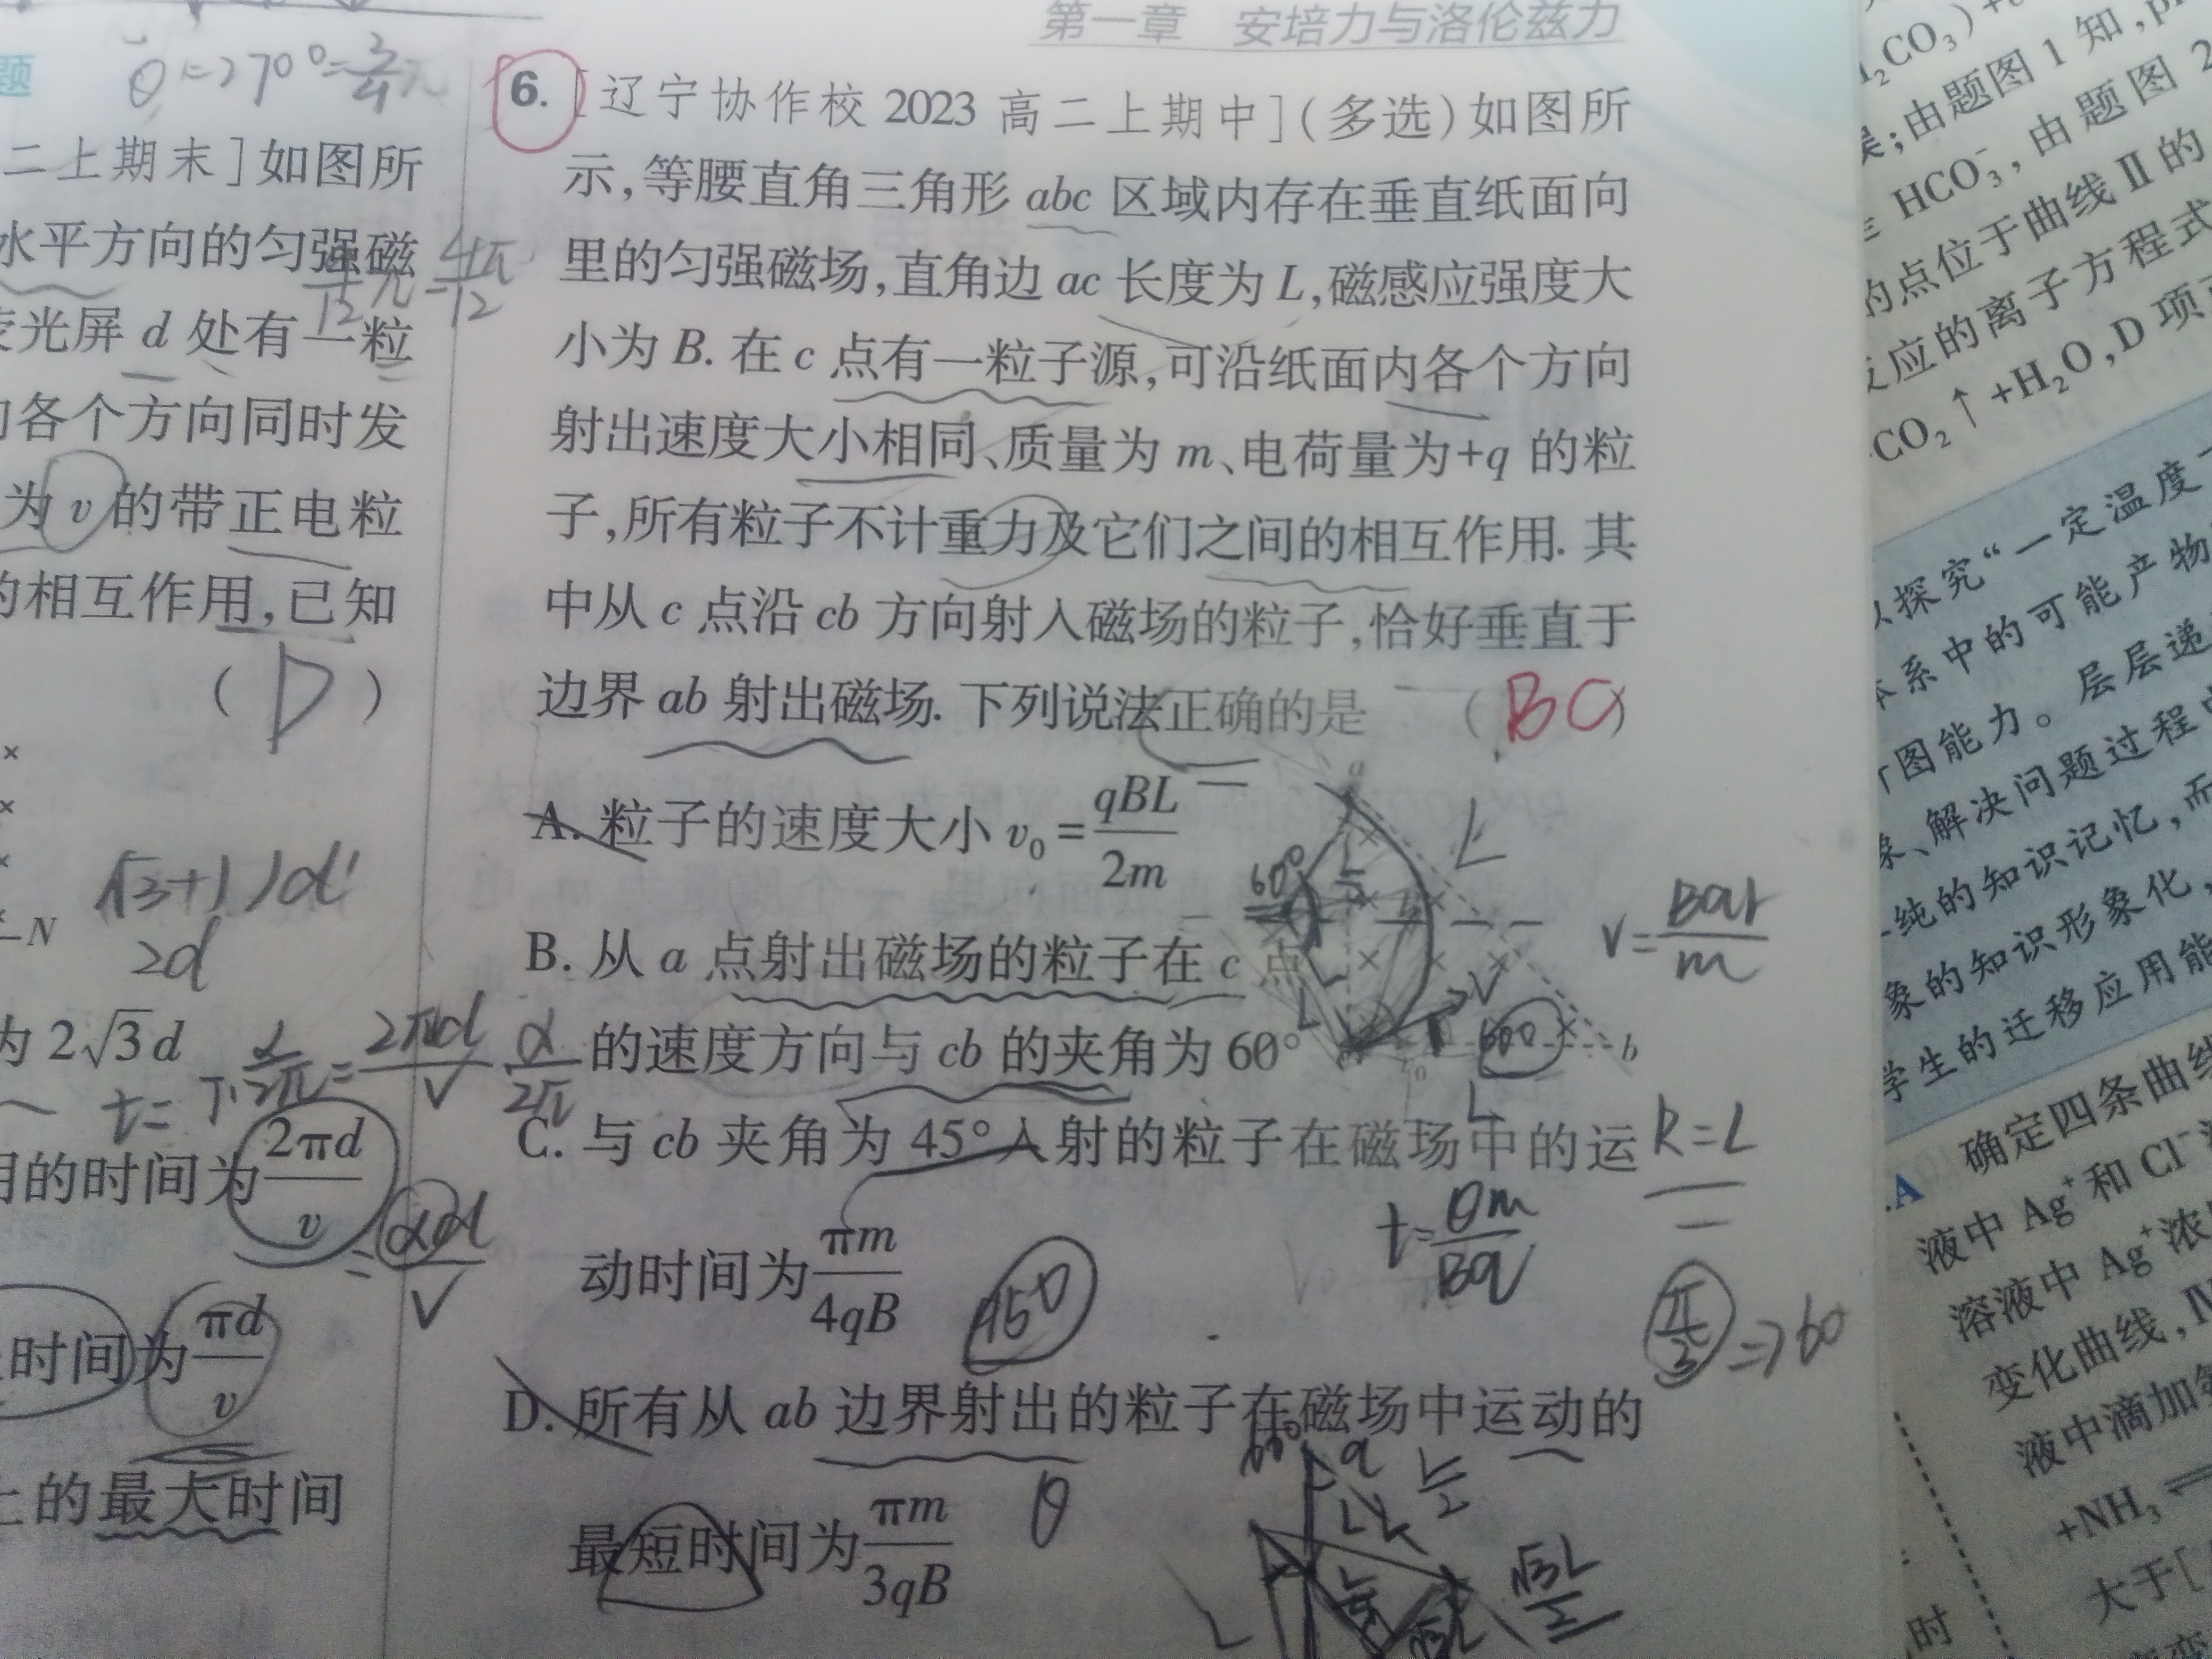 第一章 安培力与洛伦兹力
题
θ=270°=
二上期末]如图所
水平方向的匀强磁
荧光屏 d 处有一粒
各个方向同时发
为 v 的带正电粒
的相互作用,已知
( D )
N
(√3+1)d
2d
为 2√3d
t=T·α/2π=2πd/v α/2π
用的时间为2πd/v
=αd/v
时间为πd/v
上的最大时间
6. [辽宁协作校 2023 高二上期中](多选)如图所
示,等腰直角三角形 abc 区域内存在垂直纸面向
里的匀强磁场,直角边 ac 长度为 L,磁感应强度大
小为 B. 在 c 点有一粒子源,可沿纸面内各个方向
射出速度大小相同、质量为 m、电荷量为+q 的粒
子,所有粒子不计重力及它们之间的相互作用. 其
中从 c 点沿 cb 方向射入磁场的粒子,恰好垂直于
边界 ab 射出磁场. 下列说法正确的是 ( BC )
A. 粒子的速度大小 v₀=qBL/2m
B. 从 a 点射出磁场的粒子在 c 点
的速度方向与 cb 的夹角为 60°
C. 与 cb 夹角为 45°入射的粒子在磁场中的运
动时间为πm/4qB
D. 所有从 ab 边界射出的粒子在磁场中运动的
最短时间为πm/3qB
a
L
60°
v
b
L
v=Bqr/m
R=L
t=θm/Bq
π/3⇒60
45°
θ
60°
a
L/2
√3L/2
L
₂CO₃)+
;由题图 1 知,p
HCO₃⁻,由题图 2
的点位于曲线Ⅱ的
反应的离子方程式
CO₂↑+H₂O,D 项
以探究“一定温度
体系中的可能产物
图能力。层层递
、解决问题过程
纯的知识记忆,而
象的知识形象化,
学生的迁移应用能
A 确定四条曲线
液中 Ag⁺和 Cl⁻
溶液中 Ag⁺浓
变化曲线,Ⅳ
液中滴加氨
+NH₃⇌
大于[
时